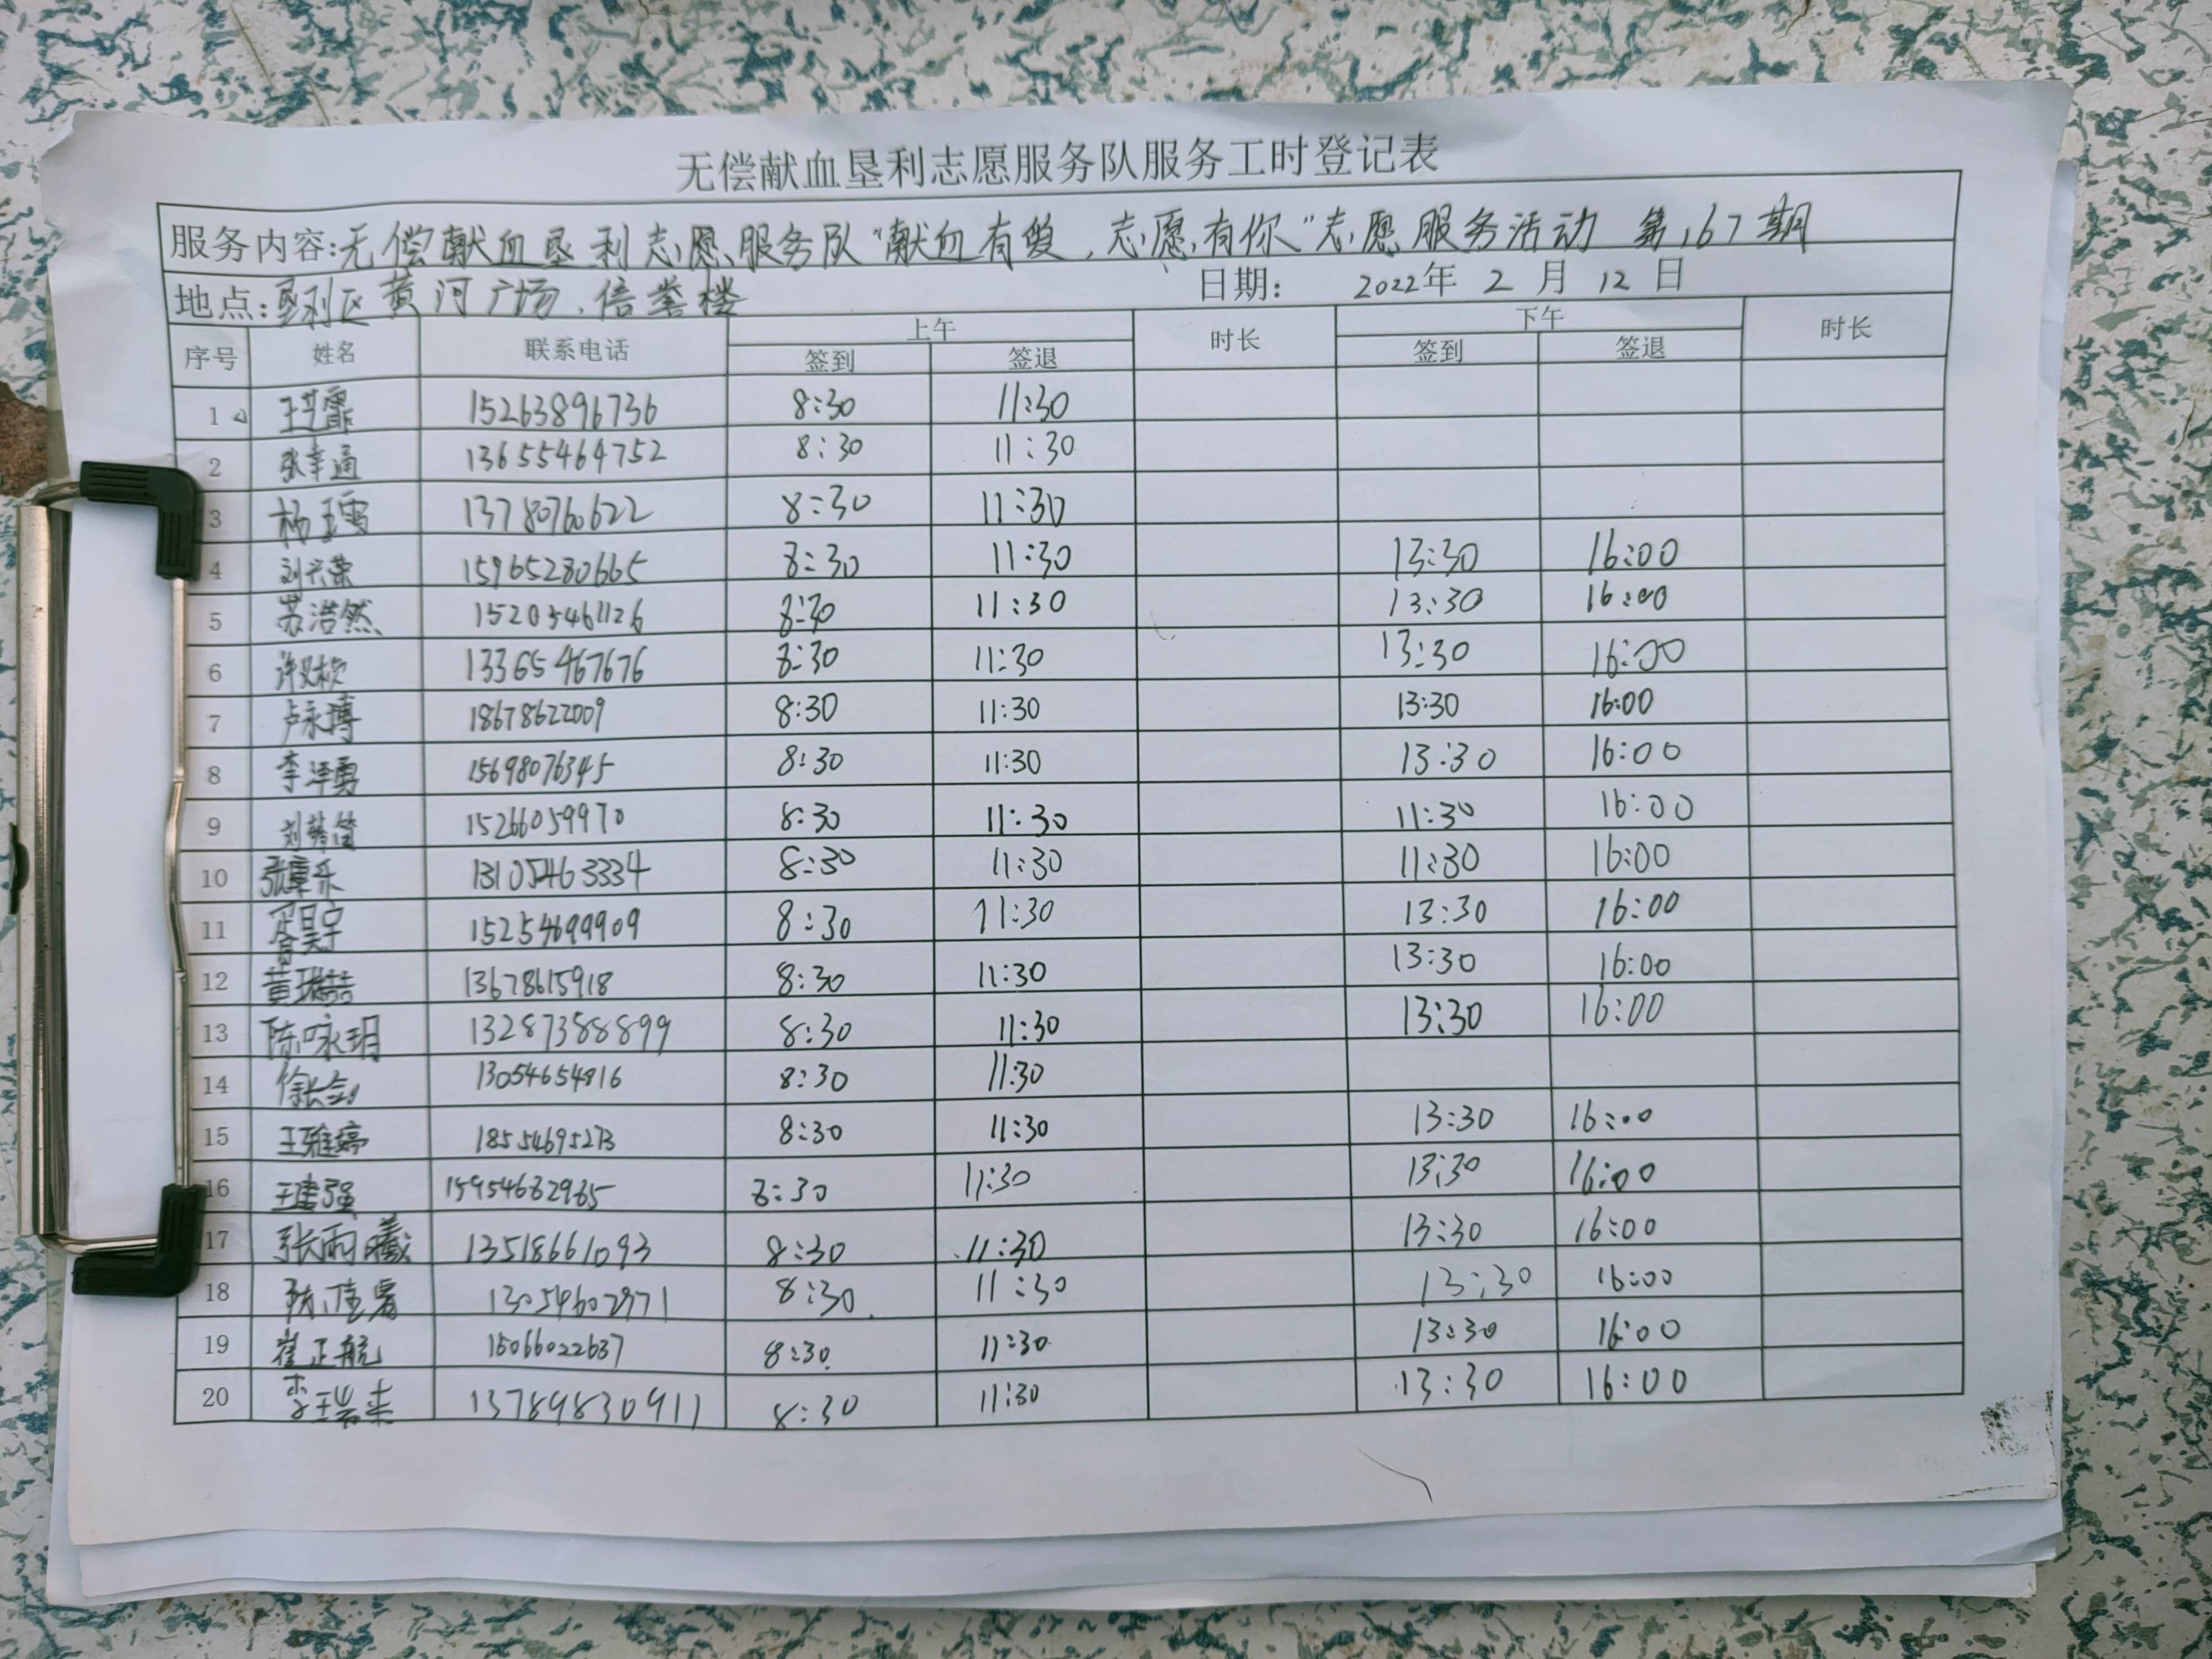 无偿献血垦利志愿服务队服务工时登记表
服务内容:无偿献血垦利志愿服务队"献血有爱,志愿有你"志愿服务活动 第167期
地点:垦利区黄河广场、信誉楼 日期: 2022年 2 月 12 日
序号 姓名 联系电话 上午 时长 下午 时长
签到 签退 签到 签退
1 王艺霏 15263896736 8:30 11:30
2 张幸通 13655464752 8:30 11:30
3 杨玉雪 13780760622 8:30 11:30
4 刘兴荣 15965280665 8:30 11:30 13:30 16:00
5 苏浩然 15205461126 8:30 11:30 13:30 16:00
6 许 13365467676 8:30 11:30 13:30 16:00
7 卢永博 18678622009 8:30 11:30 13:30 16:00
8 李泽勇 15698076345 8:30 11:30 13:30 16:00
9 刘 15266059970 8:30 11:30 11:30 16:00
10 张章乐 13105463334 8:30 11:30 11:30 16:00
11 胥昊宇 15254699909 8:30 11:30 13:30 16:00
12 黄 13678615918 8:30 11:30 13:30 16:00
13 陈咏玥 13287388899 8:30 11:30 13:30 16:00
14 徐长剑 13054654816 8:30 11:30
15 王雅婷 18554695273 8:30 11:30 13:30 16:00
16 王建强 15954682965 8:30 11:30 13:30 16:00
17 张雨曦 13518661093 8:30 11:30 13:30 16:00
18 13054602971 8:30 11:30 13:30 16:00
19 崔正航 15066022637 8:30 11:30 13:30 16:00
20 李 13789830911 8:30 11:30 13:30 16:00